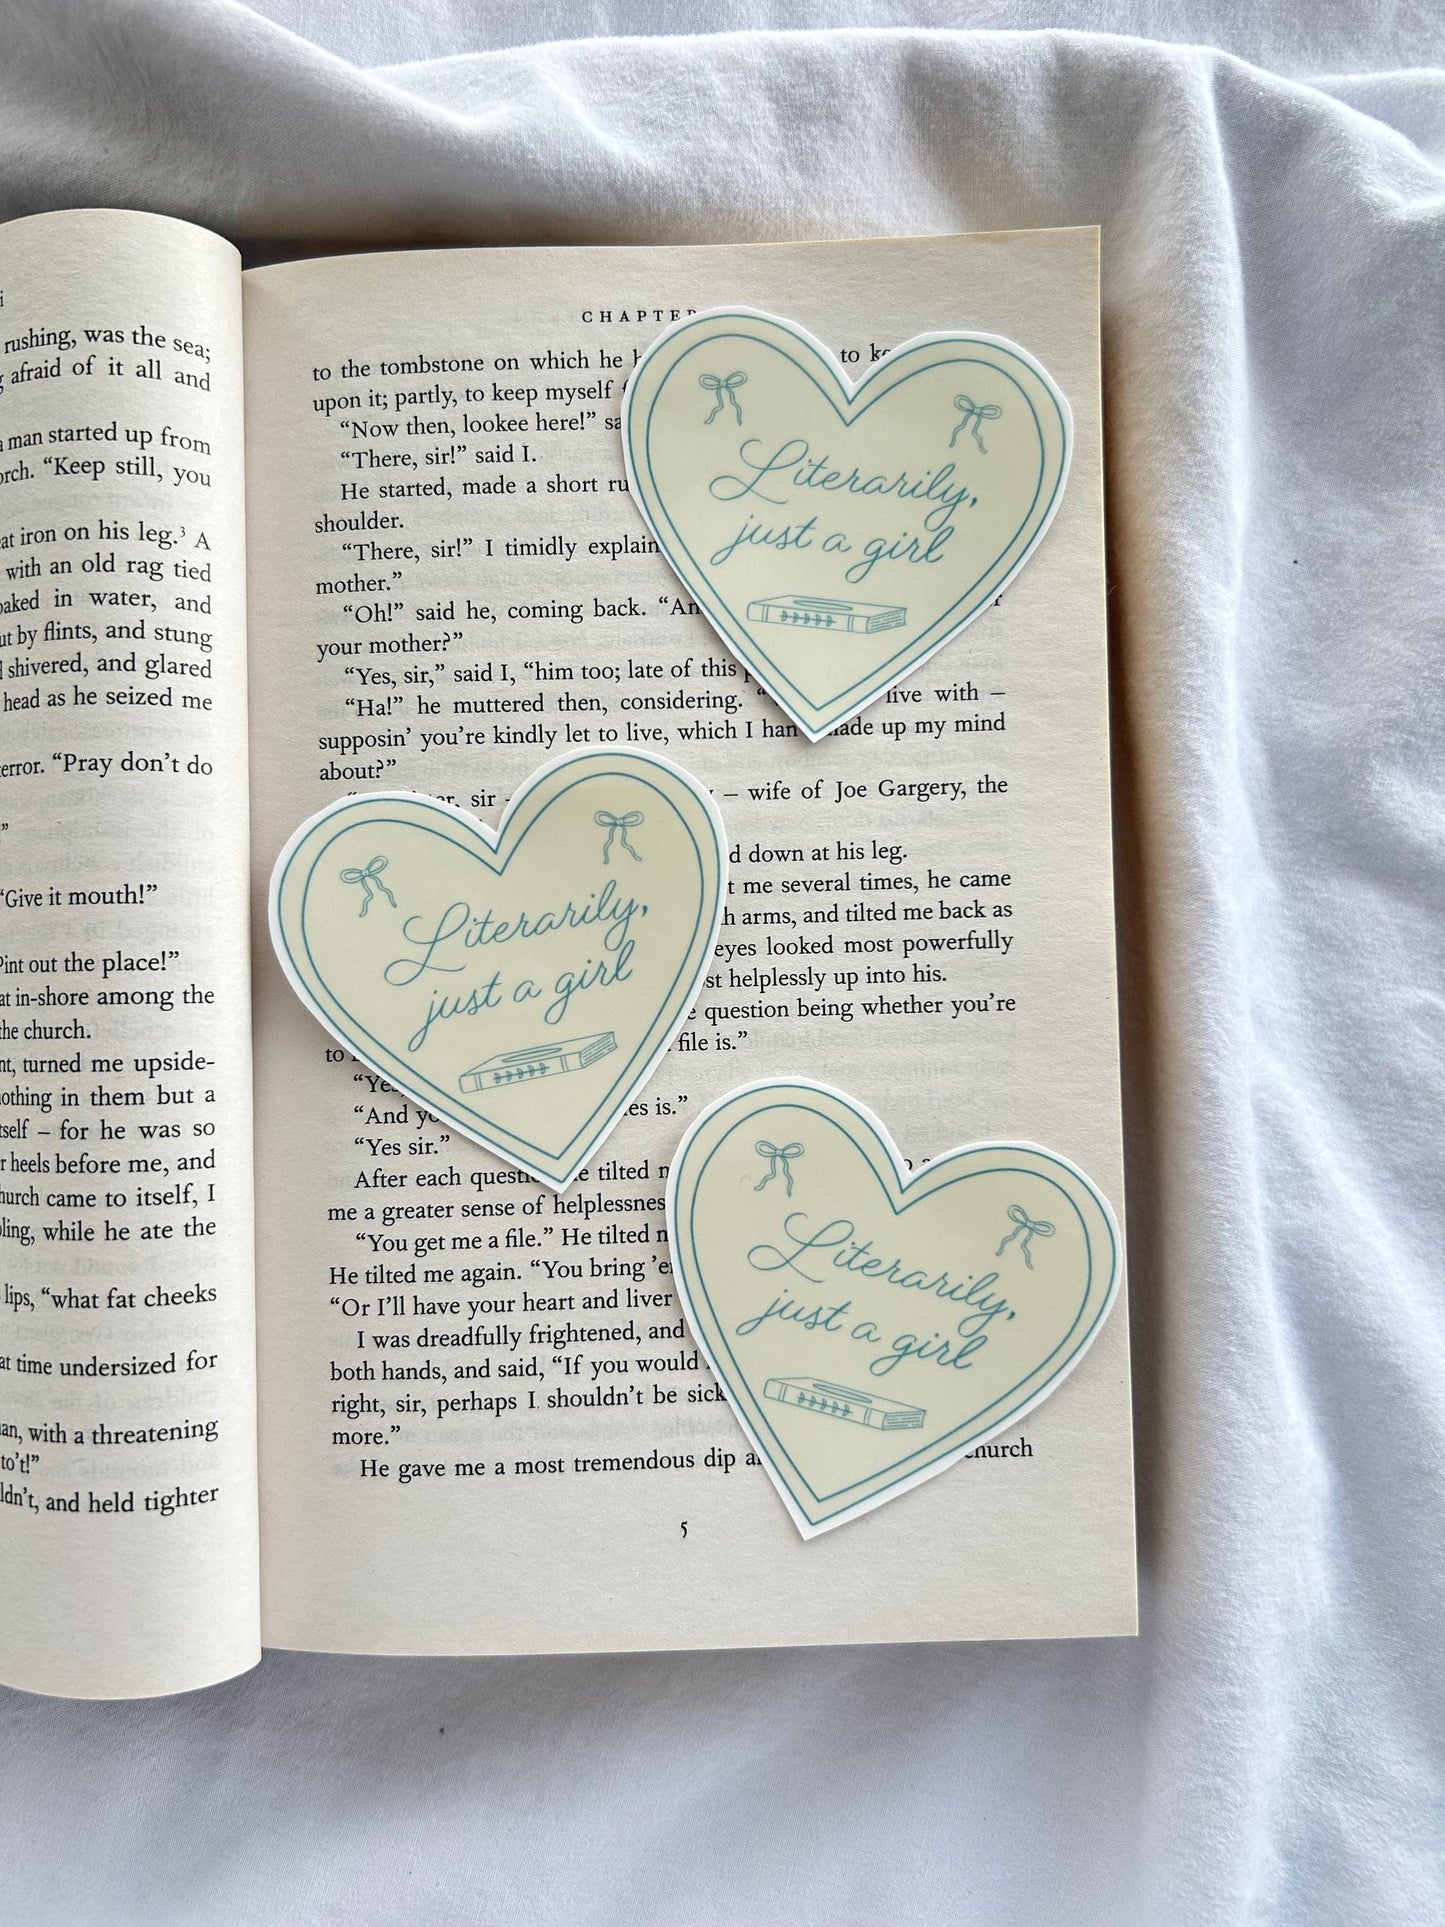 i
rushing, was the sea;
afraid of it all and
man started up from
“Keep still, you
iron on his leg.³ A
with an old rag tied
in water, and
by flints, and stung
shivered, and glared
head as he seized me
“Pray don’t do
”
“Give it mouth!”
out the place!”
in-shore among the
the church.
turned me upside-
in them but a
– for he was so
heels before me, and
came to itself, I
while he ate the
lips, “what fat cheeks
time undersized for
with a threatening
to’t!”
and held tighter
CHAPTER
to the tombstone on which he
to
upon it; partly, to keep myself
“Now then, lookee here!”
“There, sir!” said I.
He started, made a short
shoulder.
“There, sir!” I timidly
mother.”
“Oh!” said he, coming back.
your mother?”
“Yes, sir,” said I, “him too; late of this
“Ha!” he muttered then, considering.
live with –
supposin’ you’re kindly let to live, which I han’t made up my mind
about?”
sir
– wife of Joe Gargery, the
down at his leg.
me several times, he came
arms, and tilted me back as
eyes looked most powerfully
helplessly up into his.
question being whether you’re
to
file is.”
“And
is.”
“Yes sir.”
After each question he tilted
me a greater sense of
“You get me a file.” He tilted
He tilted me again. “You bring
“Or I’ll have your heart and liver
I was dreadfully frightened, and
both hands, and said, “If you would
right, sir, perhaps I shouldn’t be
more.”
He gave me a most tremendous dip
church
5
Literarily,
just a girl
Literarily,
just a girl
Literarily,
just a girl